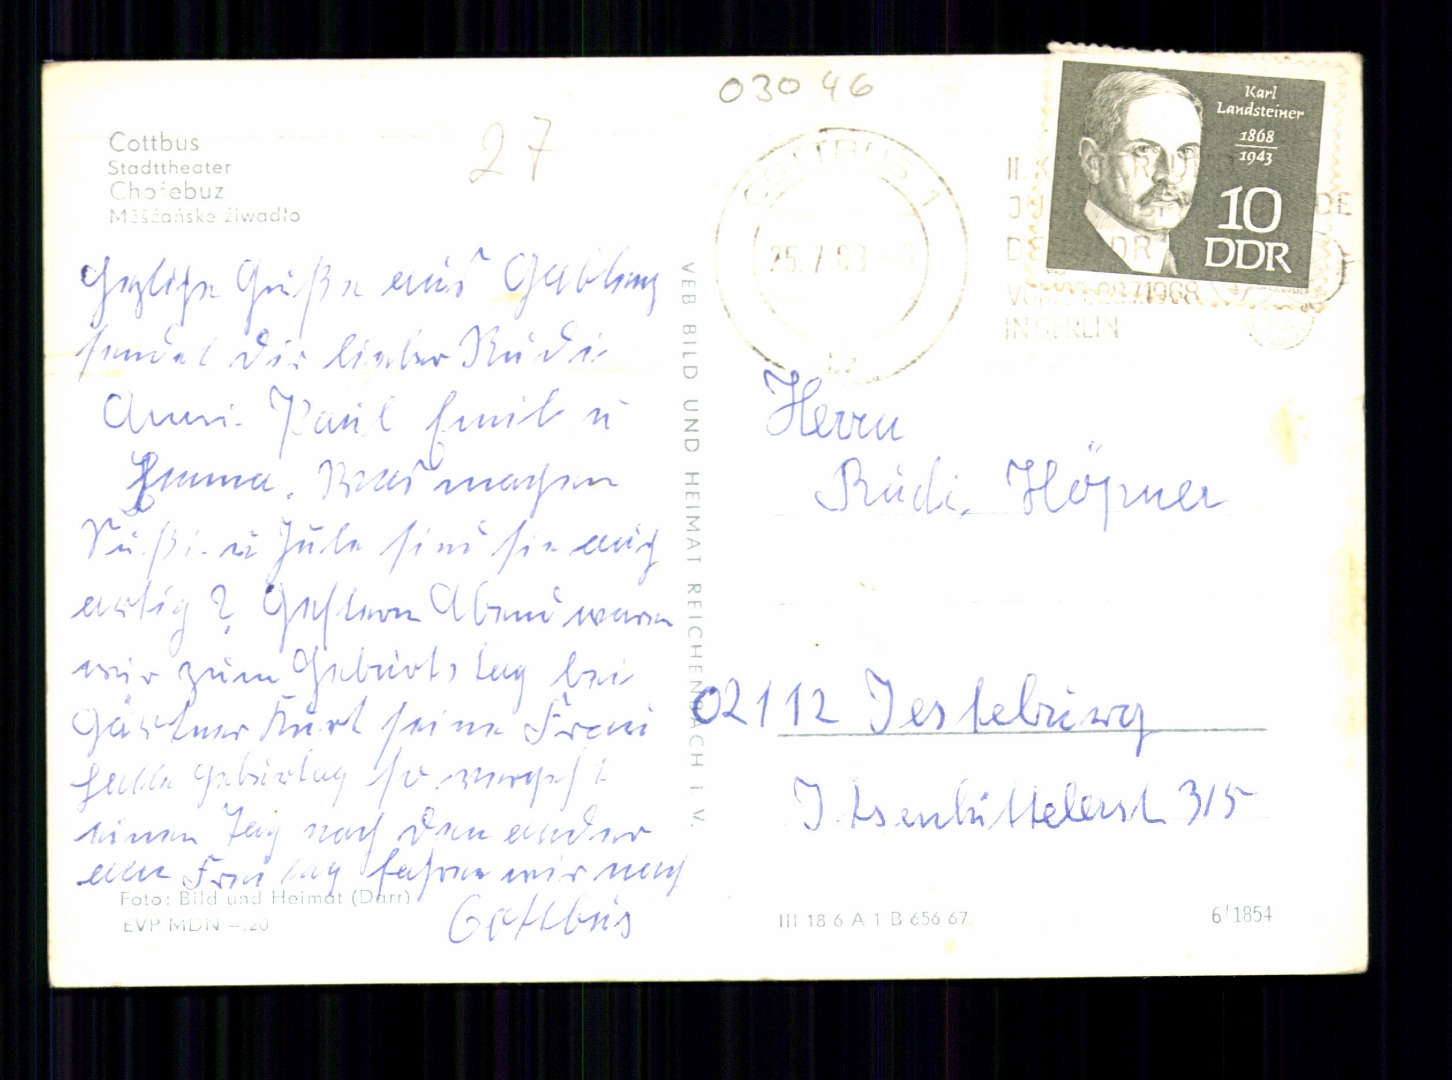 03046
27
Cottbus
Stadttheater
Chośebuz
Měšćańske źiwadło
Karl
Landsteiner
1868
1943
10
DDR
COTTBUS 1
25.7.68
II. K
JU DE
DE DDR
VOM 1968
IN BERLIN
Herzliche Grüße aus
sendet Dir lieber Rudi
Anni. Paul Emil u
Emma. Was machen
u Jule sind sie auch
artig? Gestern Abend waren
wir zum Geburtstag bei
Gärtner Kurt seine Frau
hatte Geburtstag so vergeht
einen Tag nach den ander
Freitag fahren wir nach
Cottbus
VEB BILD UND HEIMAT REICHENBACH I. V.
Herrn
Rudi Höpner
02112 Jesteburg
Itzenbüttelerst 315
Foto: Bild und Heimat (Darr)
EVP MDN –.20
III 18 6 A 1 B 656 67
6/1854